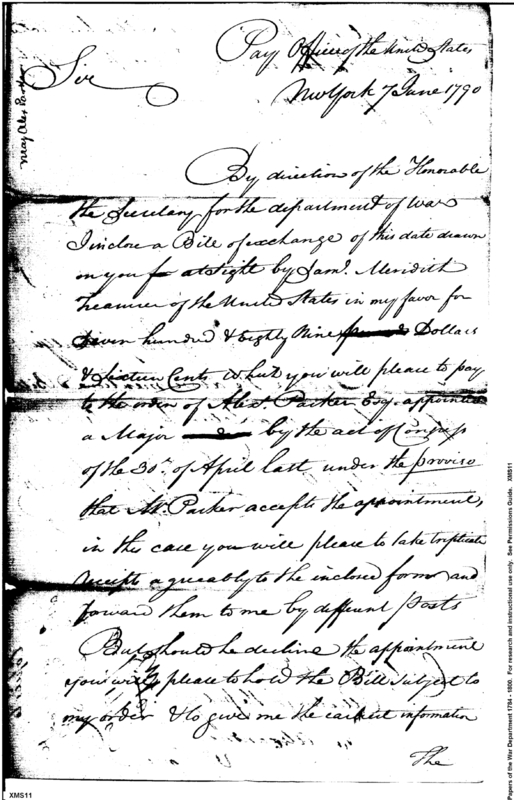 Pay Office of the United States
New York 7 June 1790
Sir
By direction of the Honorable
the Secretary for the department of war
I inclose a Bill of exchange of this date drawn
on you at sight by Saml. Meridith
Treasurer of the United States in my favor for
Seven hundred & Eighty Nine Dollars
& Sixteen Cents which you will please to pay
to the order of Alexr. Parker Esq. appointed
a Major by the act of Congress
of the 30th. of April last under the proviso
that Mr. Parker accepts the appointment,
in this case you will please to take triplicate
receipts agreeably to the inclosed form and
forward them to me by different Posts
But should he decline the appointment
you will please to hold the Bill subject to
my order & to give me the earliest information
The
Majr Alex Parker
XMS11
Papers of the War Department 1784 - 1800. For research and instructional use only. See Permissions Guide. XMS11